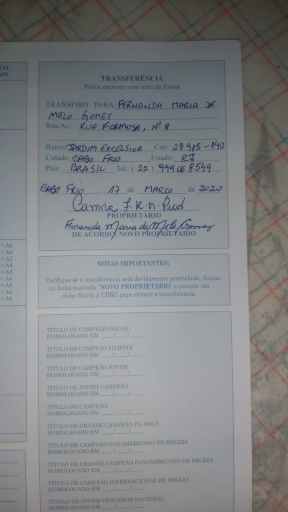 TRANSFERÊNCIA
Favor escrever com letra de forma
TRANSFIRO PARA: FERNANDA MARIA DE
MELO GOMES
Rua/Av.: RUA FORMOSA, Nº 8
Bairro: JARDIM EXCELSIOR Cep: 28915-140
Cidade: CABO FRIO Estado: RJ
País: BRASIL Tel.: (22) 99908 8549
CABO FRIO, 17 de MARÇO de 2020
Camila
PROPRIETÁRIO
Fernanda Maria de Melo Gomes
DE ACORDO NOVO PROPRIETÁRIO
NOTAS IMPORTANTES:
Verifique se a transferência está devidamente preenchida. Assine
na linha marcada "NOVO PROPRIETÁRIO" e procure um
clube filiado à CBKC para efetuar a transferência.
TÍTULO DE CAMPEÃO INICIAL
HOMOLOGADO EM ___/___/___
TÍTULO DE CAMPEÃO FILHOTE
HOMOLOGADO EM ___/___/___
TÍTULO DE CAMPEÃO JOVEM
HOMOLOGADO EM ___/___/___
TÍTULO DE JOVEM CAMPEÃO
HOMOLOGADO EM ___/___/___
TÍTULO DE CAMPEÃO
HOMOLOGADO EM ___/___/___
TÍTULO DE GRANDE CAMPEÃO DA RAÇA
HOMOLOGADO EM ___/___/___
TÍTULO DE CAMPEÃO PANAMERICANO DE BELEZA
HOMOLOGADO EM ___/___/___
TÍTULO DE GRANDE CAMPEÃO PANAMERICANO DE BELEZA
HOMOLOGADO EM ___/___/___
TÍTULO DE CAMPEÃO INTERNACIONAL DE BELEZA
HOMOLOGADO EM ___/___/___
TÍTULO DE JOVEM VENCEDOR NACIONAL
HOMOLOGADO EM ___/___/___